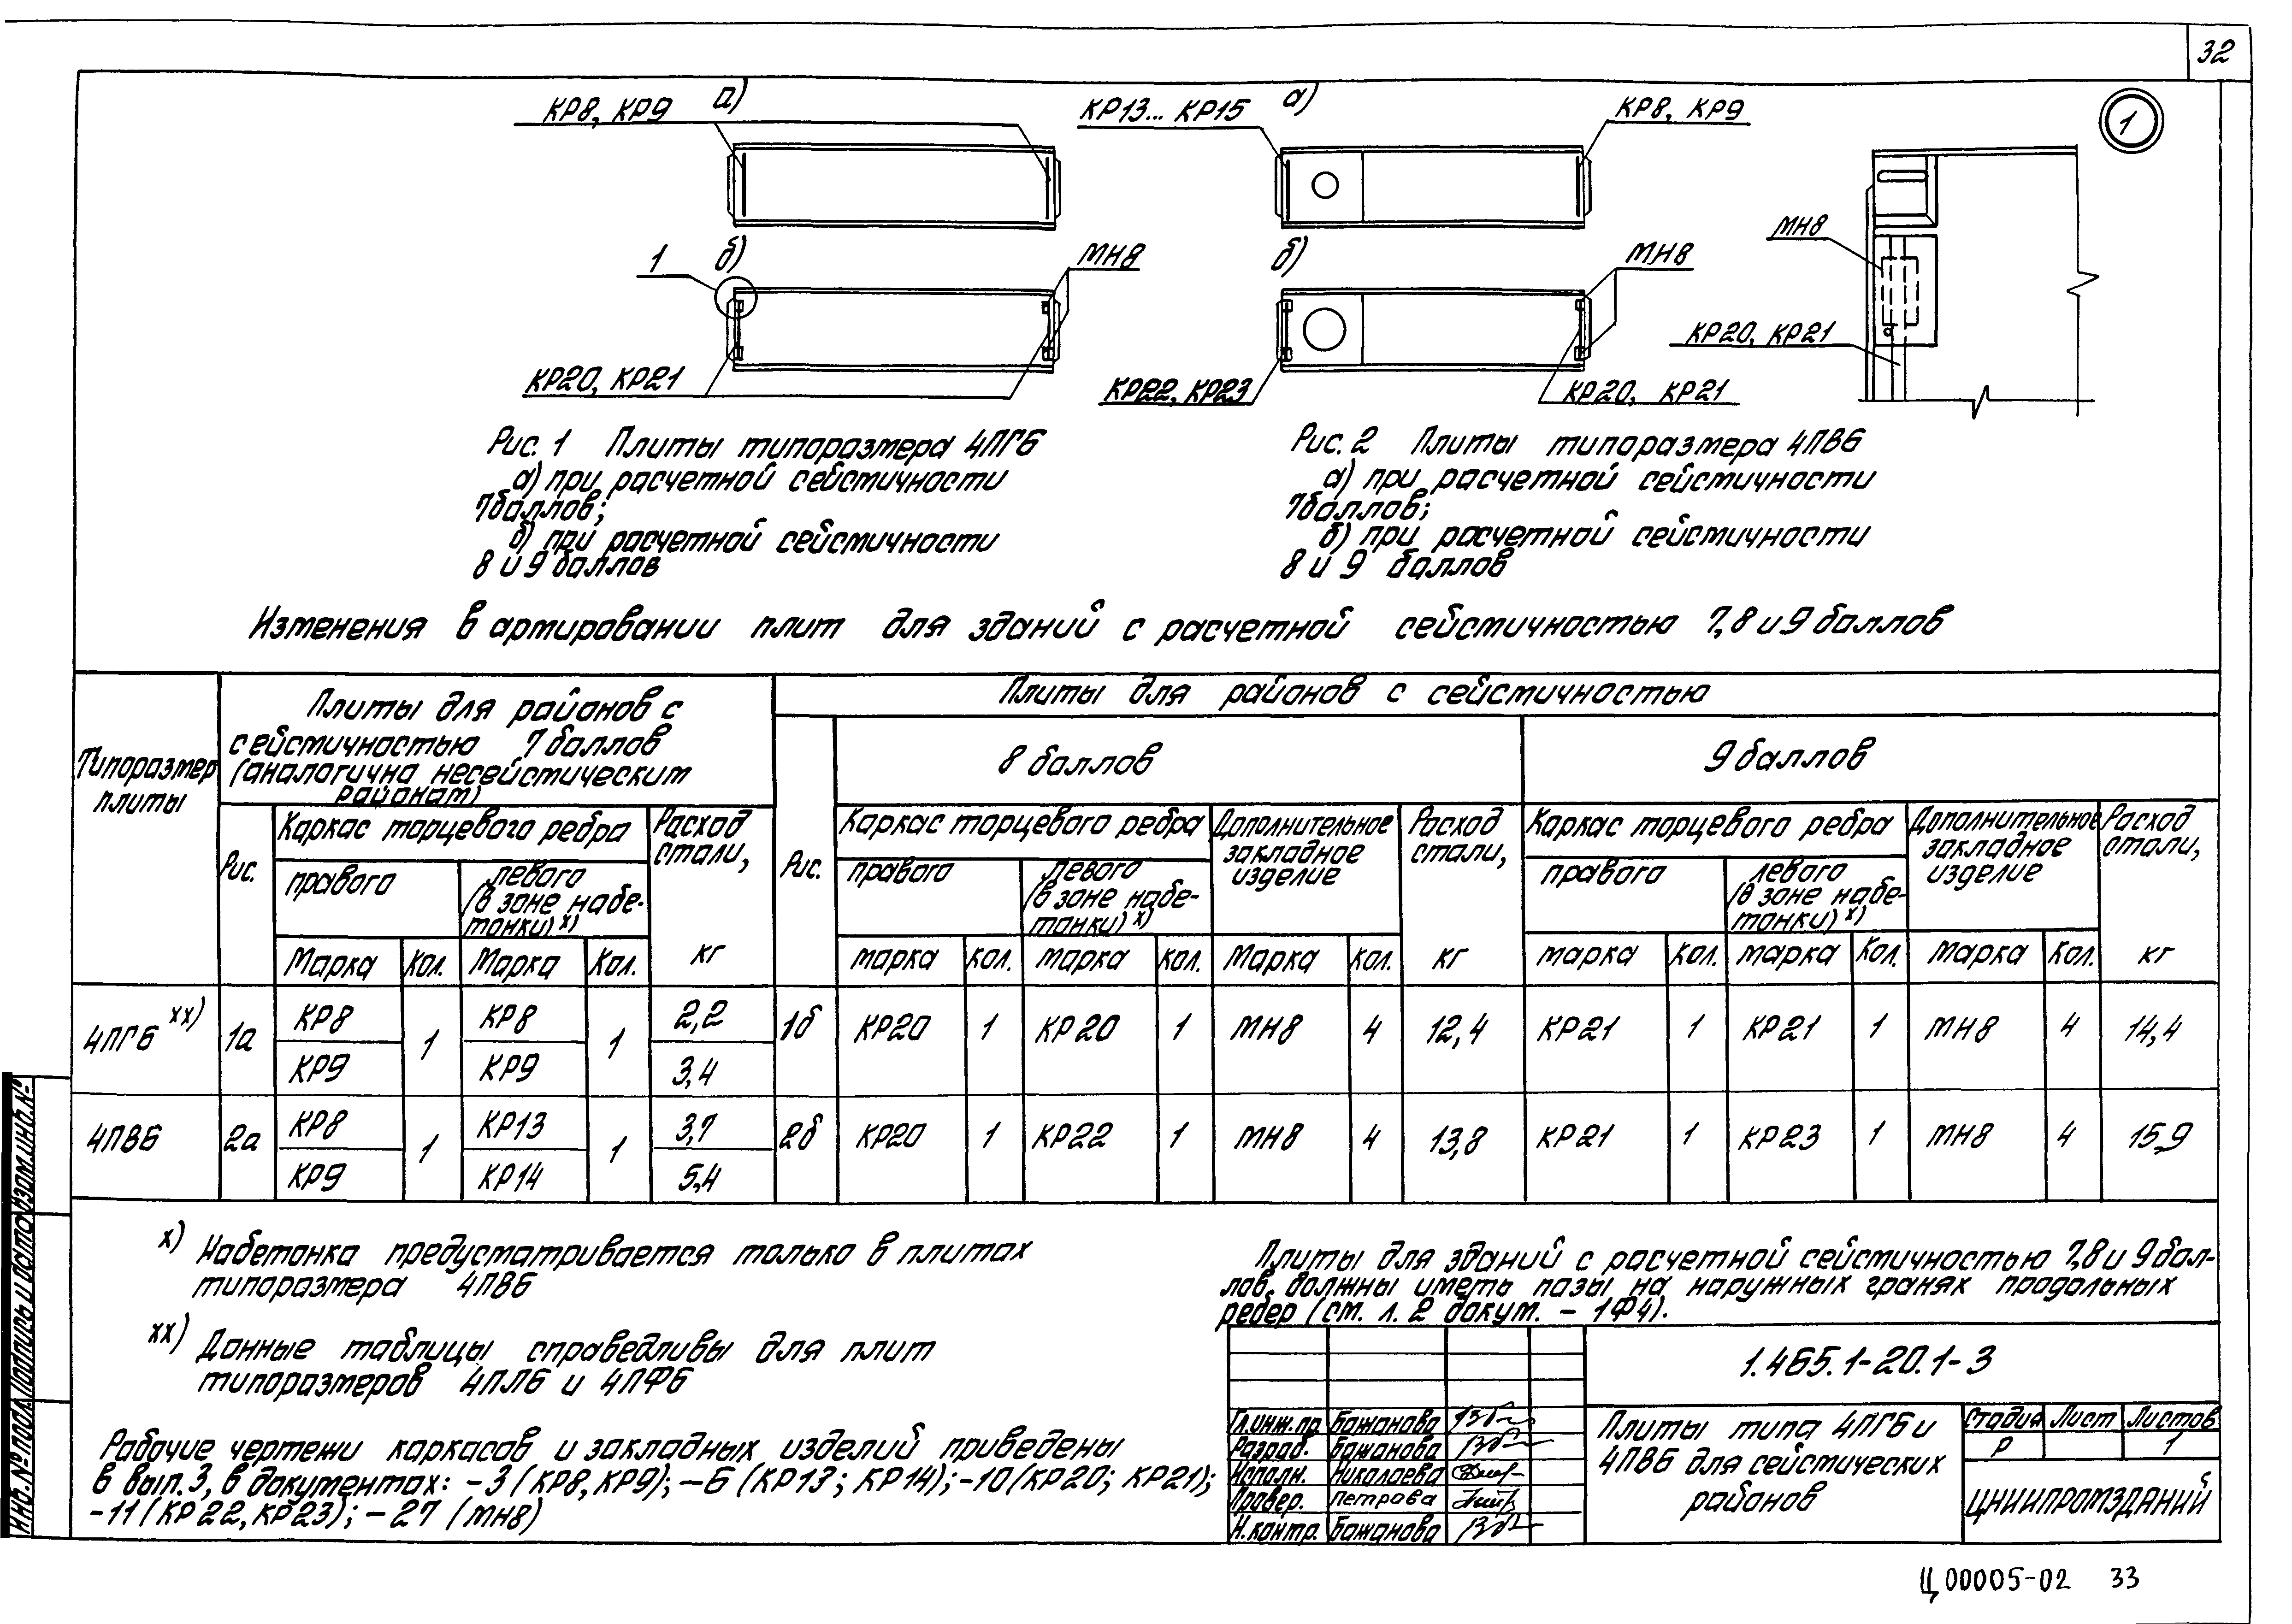 32
КР8, КР9
а)
КР13... КР15
а)
КР8, КР9
1
1
б)
МН8
КР20, КР21
б)
МН8
КР22, КР23
КР20, КР21
МН8
КР20, КР21
Рис. 1 Плиты типоразмера 4ПГ6
а) при расчетной сейсмичности
7баллов;
б) при расчетной сейсмичности
8 и 9 баллов
Рис. 2 Плиты типоразмера 4ПВ6
а) при расчетной сейсмичности
7баллов;
б) при расчетной сейсмичности
8 и 9 баллов
Изменения в армировании плит для зданий с расчетной сейсмичностью 7,8 и 9 баллов
Типоразмер
плиты
Плиты для районов с
сейсмичностью 7 баллов
(аналогична несейсмическим
районам)
Плиты для районов с сейсмичностью
8 баллов
9 баллов
Рис.
Каркас торцевого ребра
Расход
стали,
кг
правого
левого
(в зоне набе-
тонки) х)
Марка
Кол.
Марка
Кол.
Рис.
Каркас торцевого ребра
Дополнительное
закладное
изделие
Расход
стали,
кг
правого
левого
(в зоне набе-
тонки) х)
марка
Кол.
марка
Кол.
Марка
Кол.
Каркас торцевого ребра
Дополнительное
закладное
изделие
Расход
стали,
кг
правого
левого
(в зоне набе-
тонки) х)
марка
Кол.
марка
Кол.
Марка
Кол.
4ПГ6 хх) 1а КР8 1 КР8 1 2,2 1б КР20 1 КР20 1 МН8 4 12,4 КР21 1 КР21 1 МН8 4 14,4
КР9 КР9 3,4
4ПВ6 2а КР8 1 КР13 1 3,7 2б КР20 1 КР22 1 МН8 4 13,8 КР21 1 КР23 1 МН8 4 15,9
КР9 КР14 5,4
х) Набетонка предусматривается только в плитах
типоразмера 4ПВ6
хх) Данные таблицы справедливы для плит
типоразмеров 4ПЛ6 и 4ПФ6
Рабочие чертежи каркасов и закладных изделий приведены
в вып.3, в документах: -3 (КР8, КР9); -6 (КР13; КР14); -10 (КР20; КР21);
-11 (КР22, КР23); -27 (МН8)
Плиты для зданий с расчетной сейсмичностью 7,8 и 9 бал-
лов, должны иметь пазы на наружных гранях продольных
ребер (см. л. 2 докум. - 1Ф4).
1.465.1-20.1-3
Гл.инж.пр. Бажанова
Разраб. Бажанова
Исполн. Николаева
Провер. Петрова
Н.контр. Бажанова
Плиты типа 4ПГ6 и
4ПВ6 для сейсмических
районов
Стадия Лист Листов
Р 1
ЦНИИПРОМЗДАНИЙ
Инв.№ подл. Подпись и дата Взам.инв.№
Ц00005-02 33